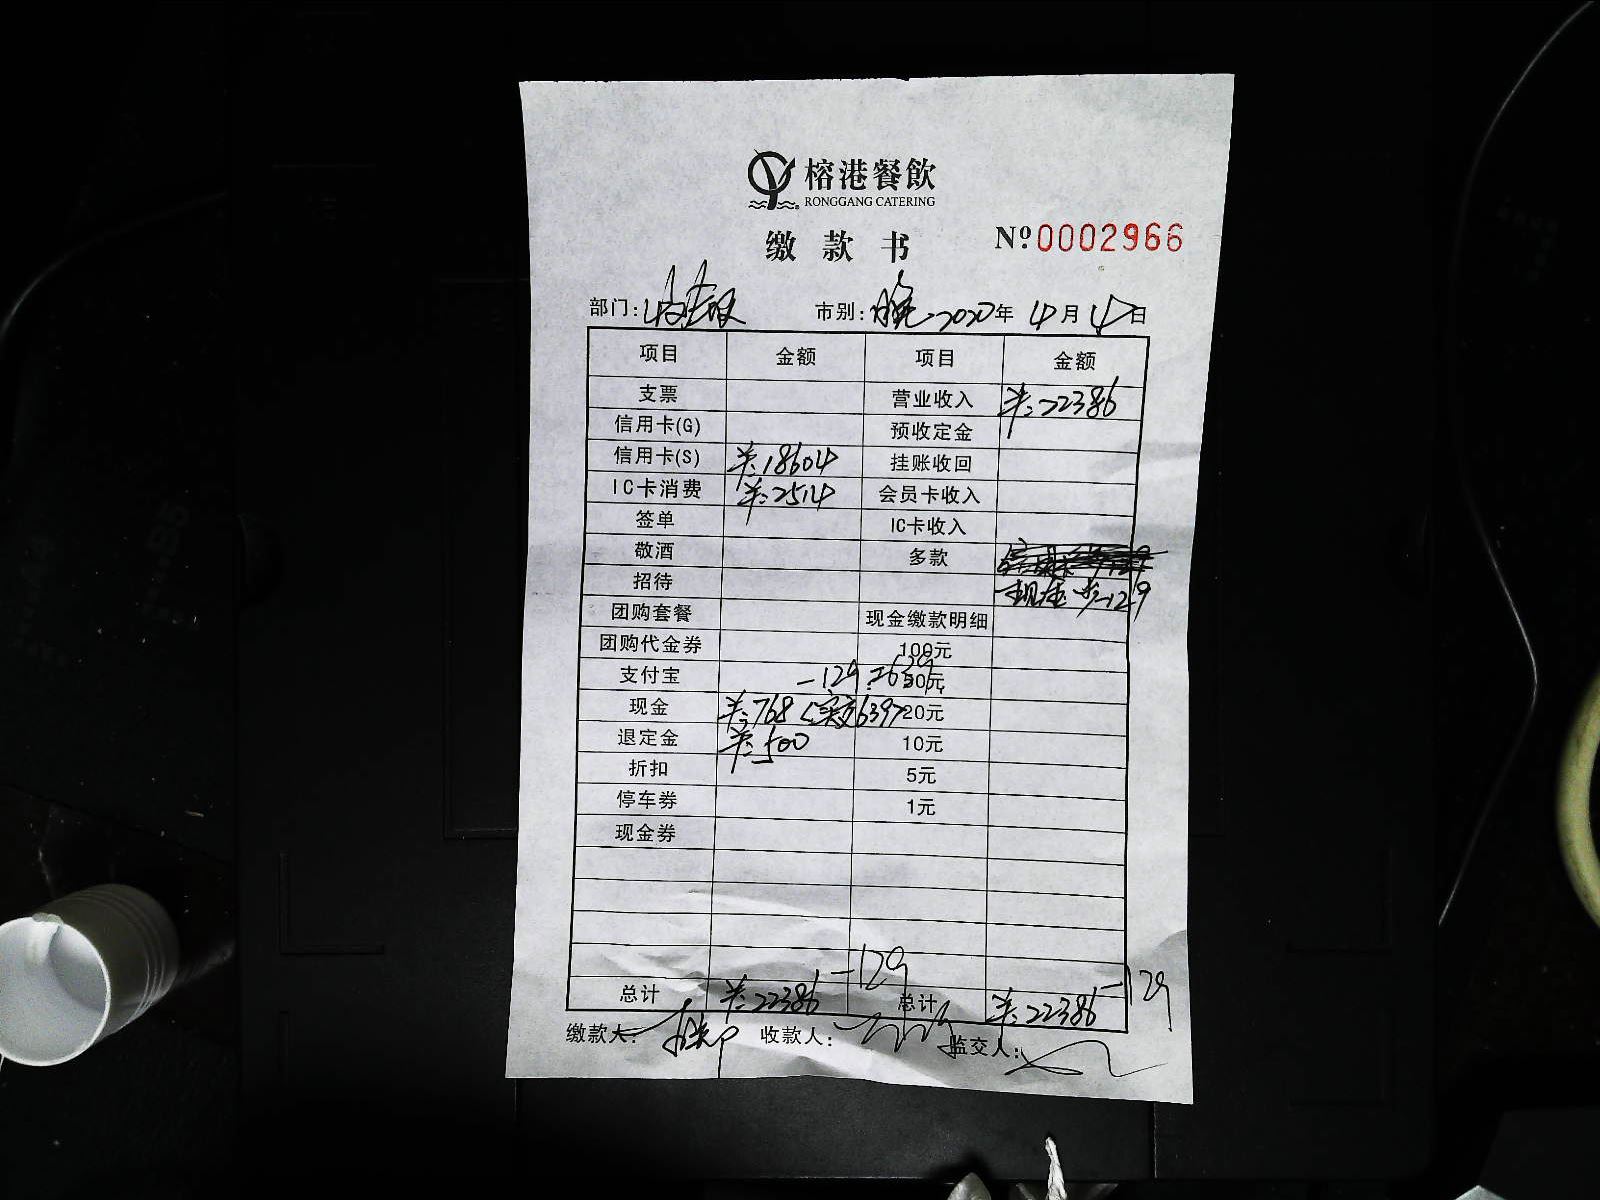 榕港餐飲
RONGGANG CATERING
缴款书 Nº0002966
部门: 市别: 晚 2020年 4月 4日
项目 金额 项目 金额
支票 营业收入 ¥:22386
信用卡(G) 预收定金
信用卡(S) ¥:18604 挂账收回
IC卡消费 ¥:2514 会员卡收入
签单 IC卡收入
敬酒 多款
招待 现金 -129
团购套餐 现金缴款明细
团购代金券 100元
支付宝 -129=639 50元
现金 ¥:768 <实交639> 20元
退定金 ¥:500 10元
折扣 5元
停车券 1元
现金券
总计 ¥:22386 -129 总计 ¥:22386 -129
缴款人: 收款人: 监交人: